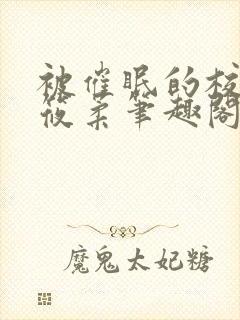 被催眠的校
筱柔笔趣阁
魔鬼太妃糖